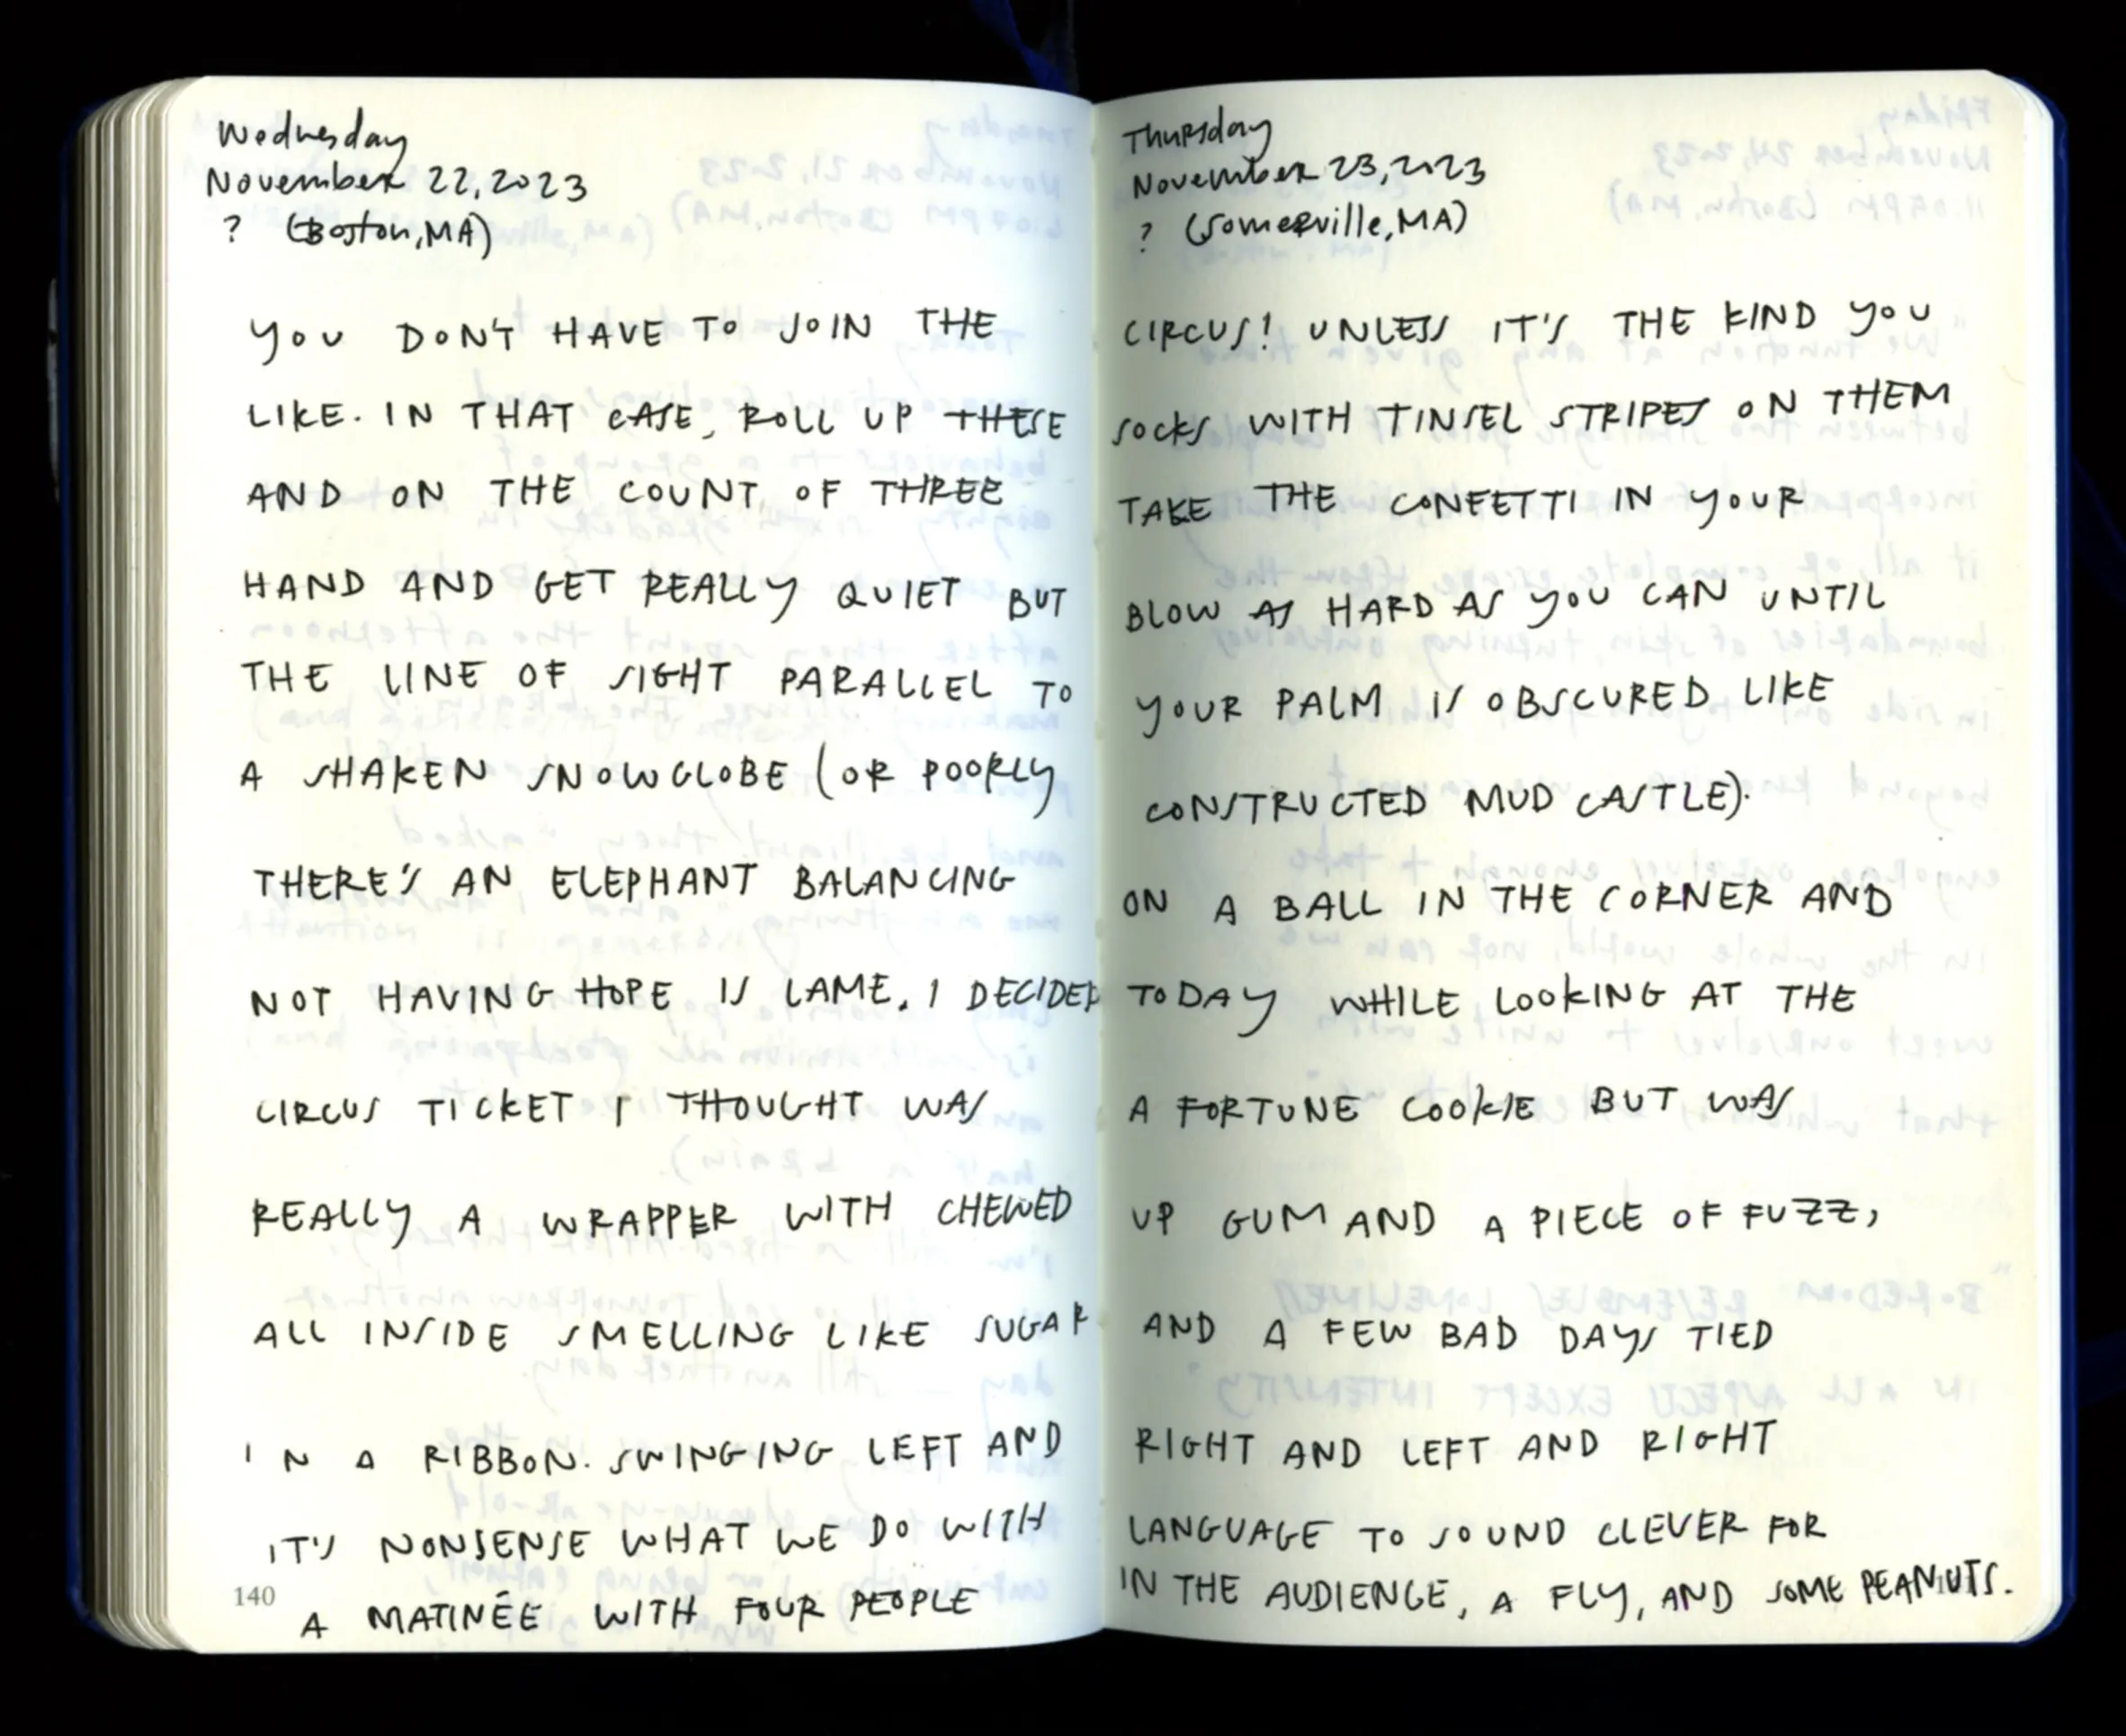 Wednesday
November 22, 2023
? (Boston, MA)
Thursday
November 23, 2023
? (Somerville, MA)
YOU DON'T HAVE TO JOIN THE CIRCUS! UNLESS IT'S THE KIND YOU
LIKE. IN THAT CASE, ROLL UP THESE SOCKS WITH TINSEL STRIPES ON THEM
AND ON THE COUNT OF THREE TAKE THE CONFETTI IN YOUR
HAND AND GET REALLY QUIET BUT BLOW AS HARD AS YOU CAN UNTIL
THE LINE OF SIGHT PARALLEL TO YOUR PALM IS OBSCURED LIKE
A SHAKEN SNOWGLOBE (OR POORLY CONSTRUCTED MUD CASTLE).
THERE'S AN ELEPHANT BALANCING ON A BALL IN THE CORNER AND
NOT HAVING HOPE IS LAME, I DECIDED TODAY WHILE LOOKING AT THE
CIRCUS TICKET I THOUGHT WAS A FORTUNE COOKIE BUT WAS
REALLY A WRAPPER WITH CHEWED UP GUM AND A PIECE OF FUZZ,
ALL INSIDE SMELLING LIKE SUGAR AND A FEW BAD DAYS TIED
IN A RIBBON. SWINGING LEFT AND RIGHT AND LEFT AND RIGHT
IT'S NONSENSE WHAT WE DO WITH LANGUAGE TO SOUND CLEVER FOR
A MATINÉE WITH FOUR PEOPLE IN THE AUDIENCE, A FLY, AND SOME PEANUTS.
140